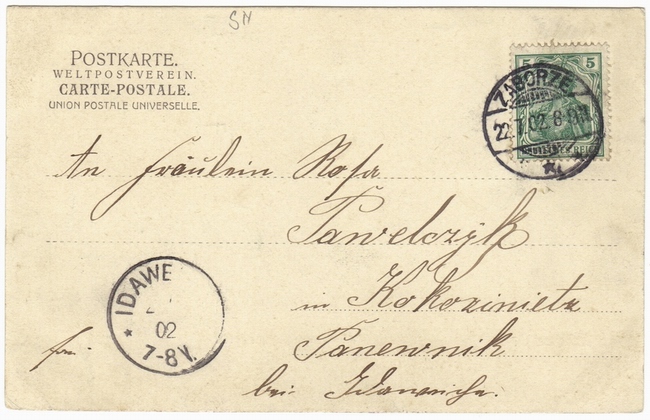 SN
POSTKARTE.
WELTPOSTVEREIN.
CARTE-POSTALE.
UNION POSTALE UNIVERSELLE.
5 5
ZABORZE.
22.7.02.8
REICH
An Fräulein Rosa
Pawelczyk
in Kokozinietz
Panewnik
bei Idaweiche.
frei.
IDAWE
02
7-8V.